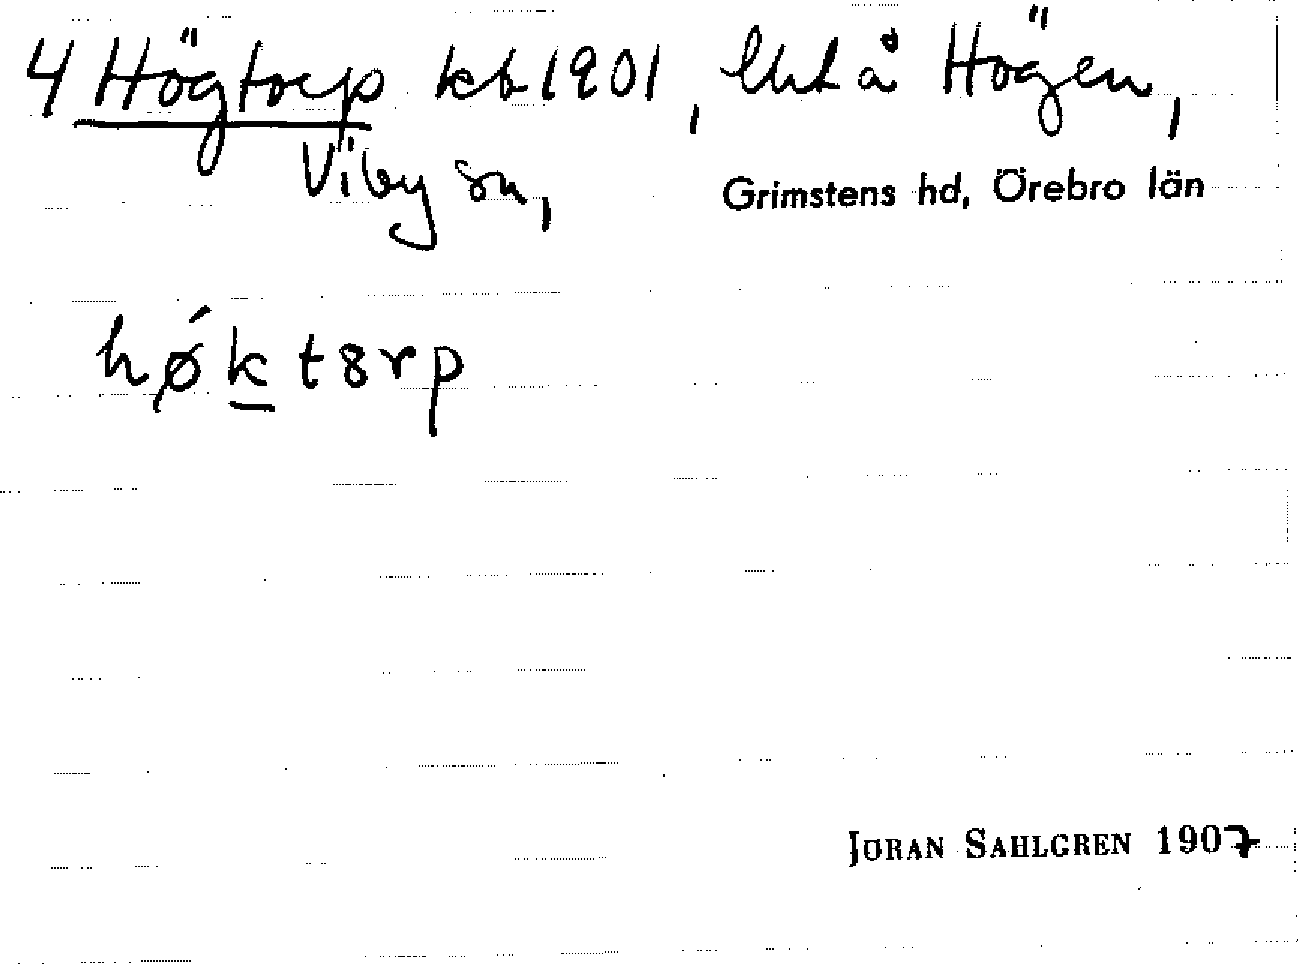 4 Högtorp kb 1901, Uht å Högen,
Viby sn,
Grimstens hd, Örebro län
hǿk̲t8rp
JÖRAN SAHLGREN 1907